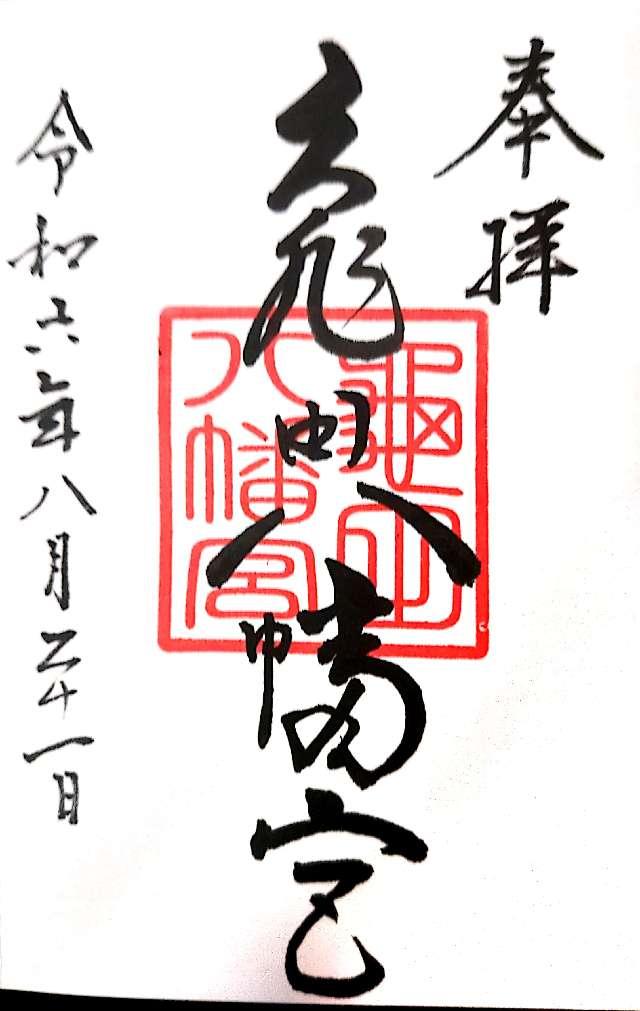 奉拝
亀田八幡宮
龜田
八幡宮
令和六年八月二十一日